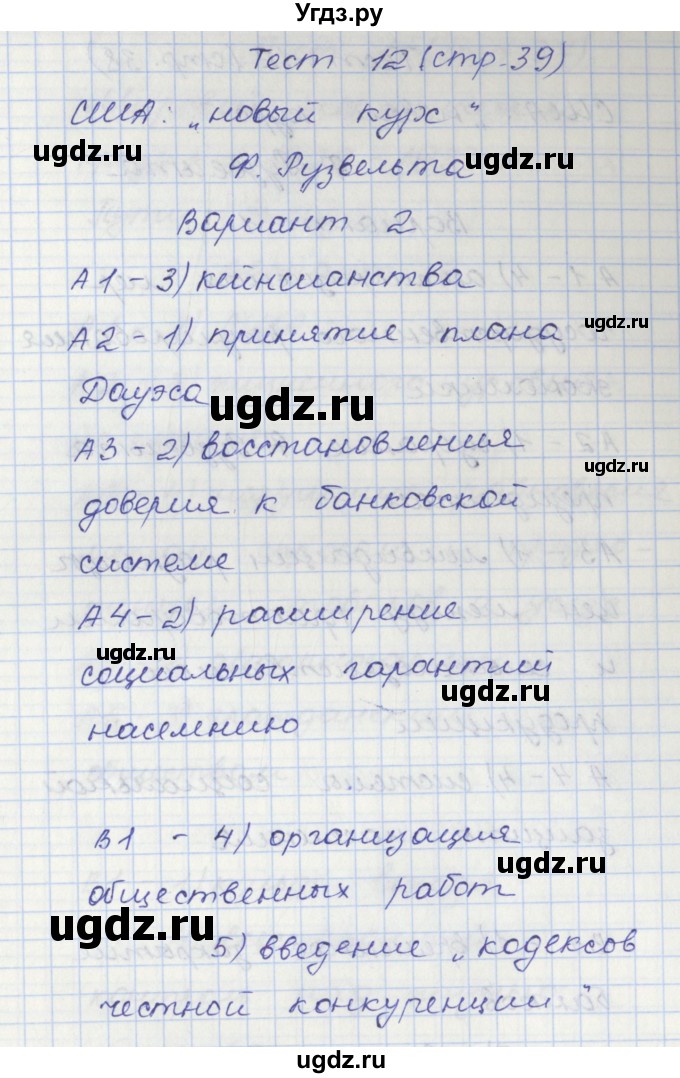 Угдз.ру
Тест 12 (стр. 39)
США: „новый курс“
ugdz.ru
ugdz.ru
Ф. Рузвельта
Вариант 2
А1 - 3) кейнсианства
ugdz.ru
А2 - 1) принятие плана
Дауэса
ugdz.ru
А3 - 2) восстановления
ugdz.ru
доверия к банковской
системе
А4 - 2) расширение
ugdz.ru
социальных гарантий
ugdz.ru
населнию
В1 - 4) организация
ugdz.ru
общественных работ
ugdz.ru
5) введение „кодексов
честной конкуренции“
ugdz.ru